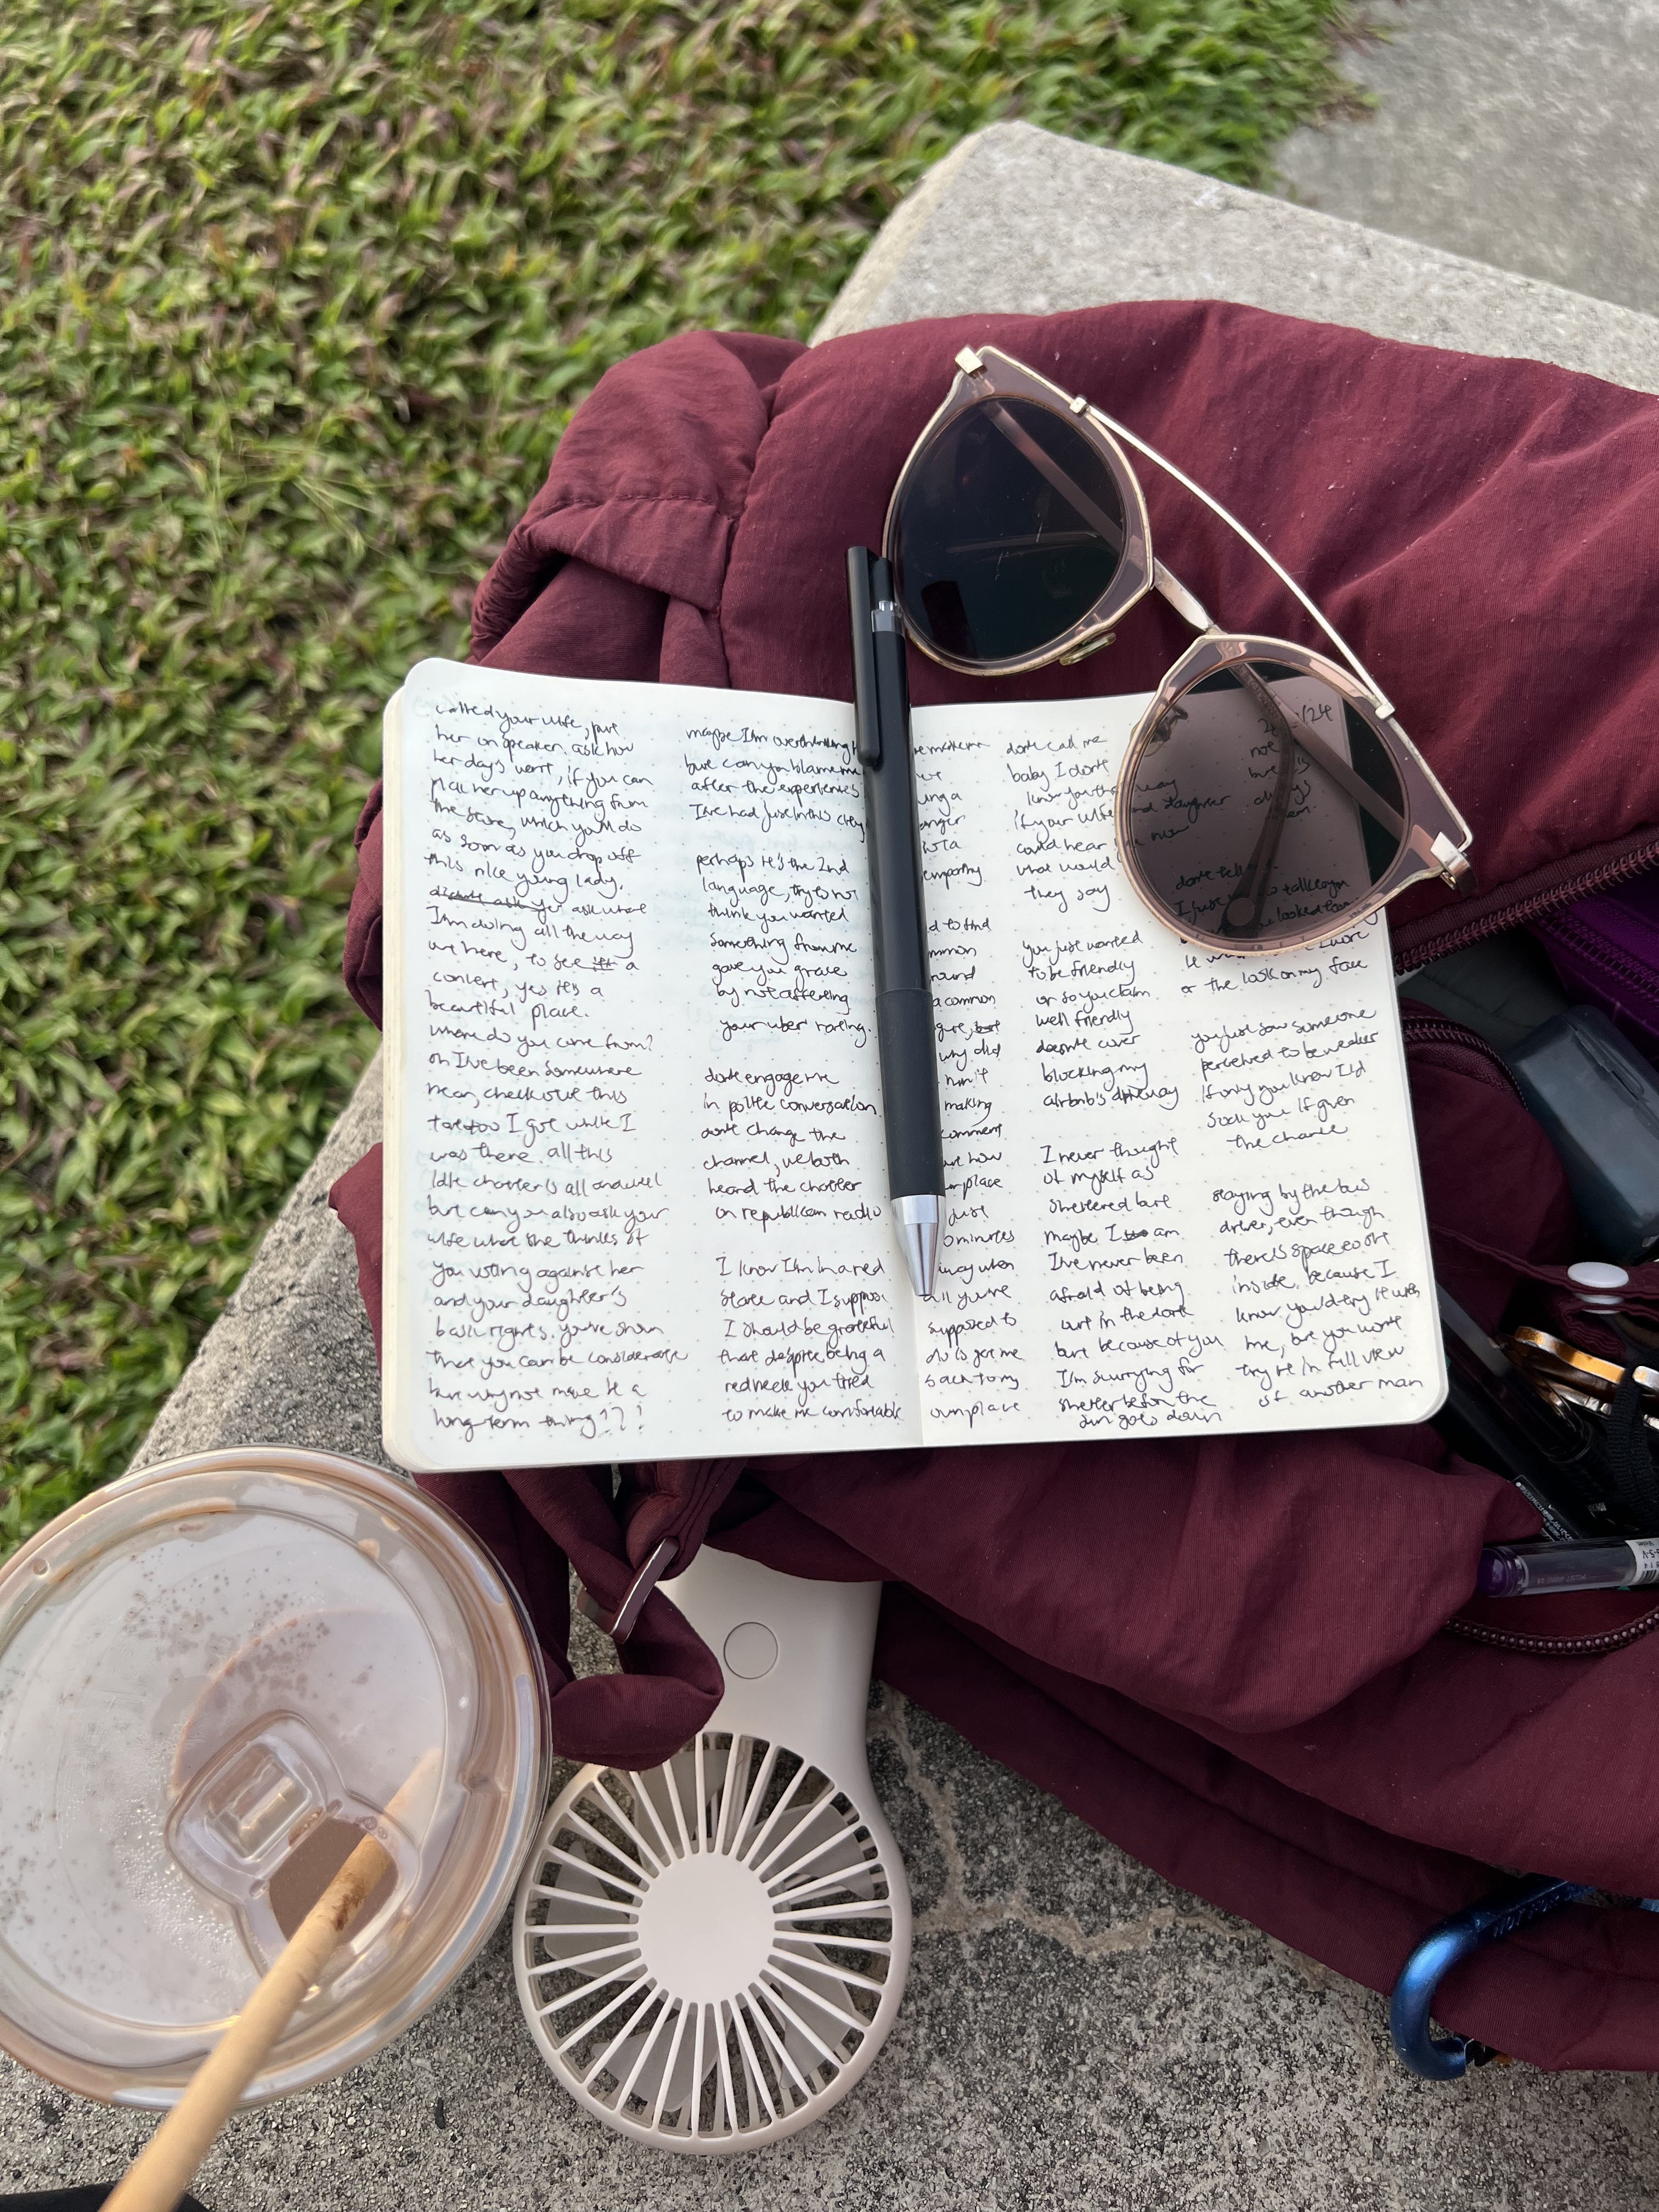 called your wife, put
her on speaker. ask how
her days went, if you can
pick her up anything from
the store, which you'll do
as soon as you drop off
this nice young lady.
ask what
I'm doing all the way
out here, to see a
concert, yes it's a
beautiful place.
where do you come from?
oh I've been somewhere
near, check out this
tattoo I got while I
was there. all this
idle chatter is all and well
but can you also ask your
wife what she thinks of
you voting against her
and your daughter's
basic rights. you've shown
that you can be considerate
but why not make it a
long-term thing???
maybe I'm overthinking it
but can you blame me
after the experiences
I've had just in this city
perhaps it's the 2nd
language, try to not
think you wanted
something from me
gave you grace
by not affecting
your uber rating.
don't engage me
in polite conversation
don't change the
channel, we both
heard the chatter
on republican radio
I know I'm in a red
state and I suppose
I should be grateful
that despite being a
redneck you tried
to make me comfortable
d to find
mmon
round
a common
gure, but
why did
making
comment
how
place
just
minutes
away when
all you're
supposed to
do is get me
back to my
own place
don't call me
baby I don't
know you that way
if your wife and daughter
could hear you now
what would
they say
you just wanted
to be friendly
or so you claim
well friendly
doesn't cover
blocking my
airbnb's driveway
I never thought
of myself as
sheltered but
maybe I am
I've never been
afraid of being
out in the dark
but because of you
I'm scurrying for
shelter before the
sun goes down
/24
not
but
always
don't tell
I just to talk
looked
or the look on my face
you just saw someone
perceived to be weaker
if only you knew I'd
sock you if given
the chance
staying by the bus
driver, even though
there's space to sit
inside. because I
know you'd try it with
me, but you won't
try it in full view
of another man